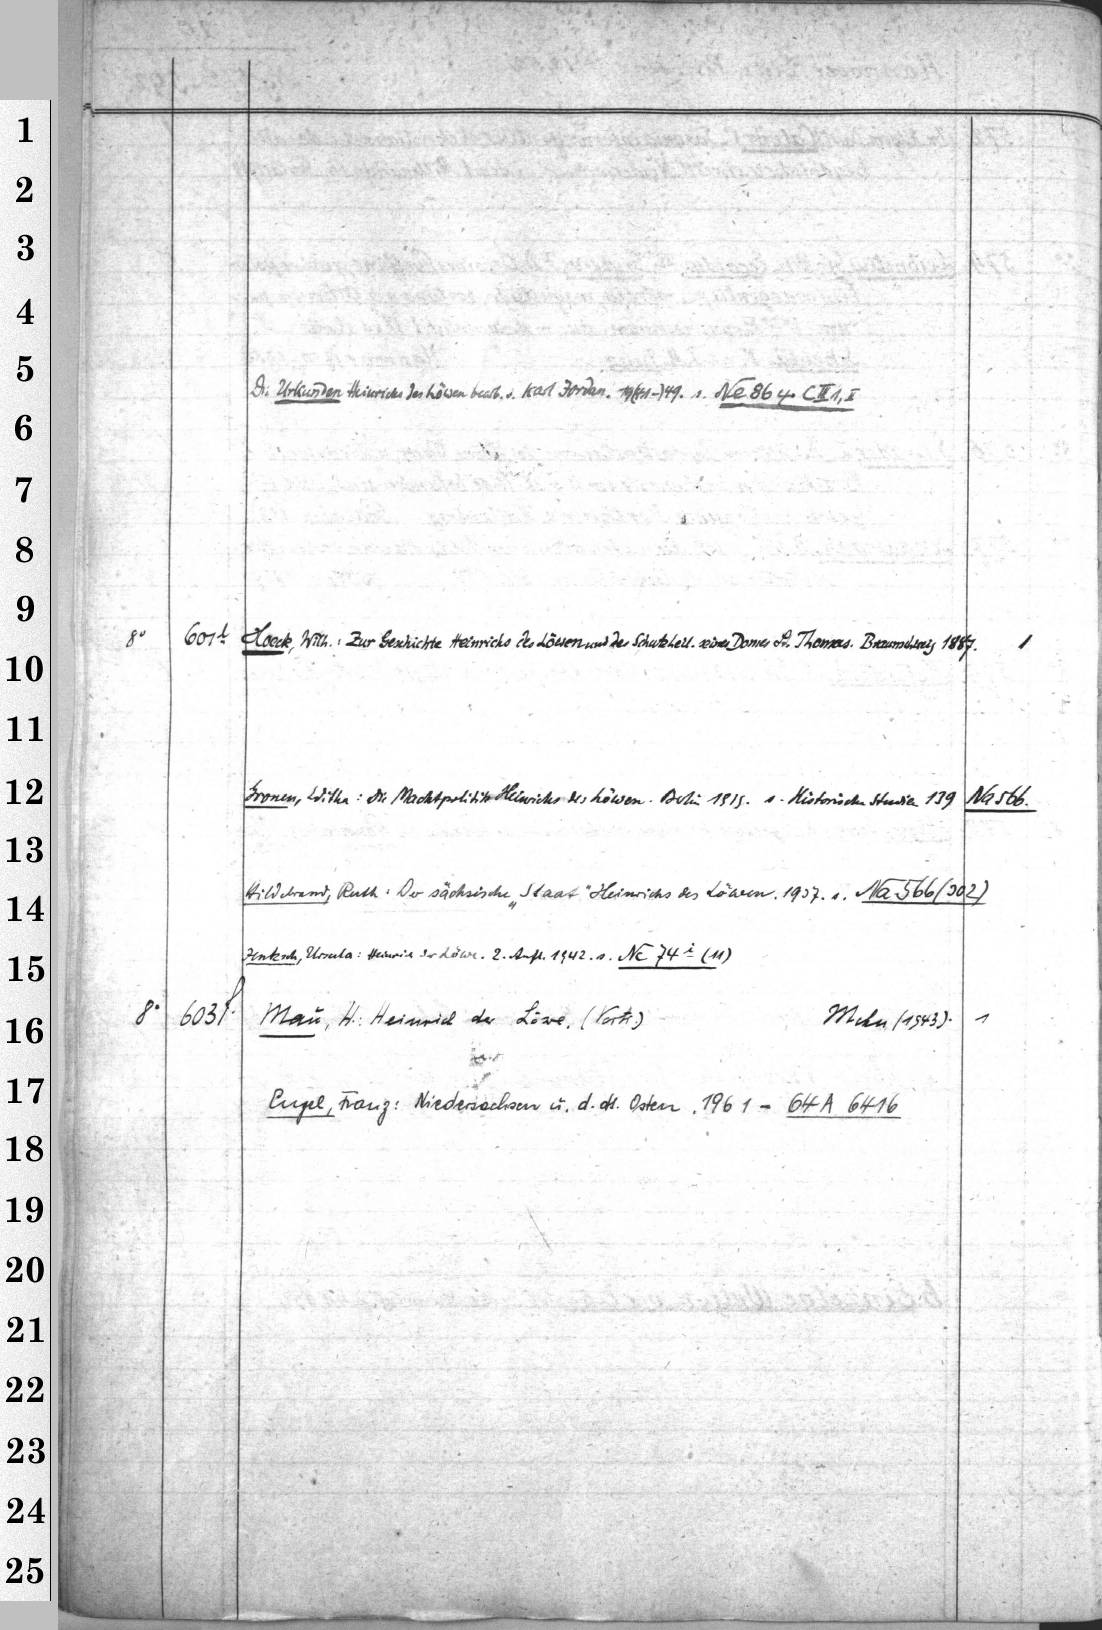 1
2
3
4
5
Die Urkunden Heinrichs des Löwen bearb. v. Karl Jordan. 19(41-)49. s. Ne 864 C III 1, II
6
7
8
9
8° 601 Hoeck, Wilh.: Zur Geschichte Heinrichs des Löwen und des Schutzheil. seines Domes St. Thomas. Braunschweig 1887. 1
10
11
12 Gronen, Editha: Die Machtpolitik Heinrichs des Löwen. Berlin 1919. s. Historische Studien 139 Na 566.
13
14 Hildebrand, Ruth: Der sächsische „Staat" Heinrichs des Löwen. 1937. s. Na 566 (302)
15 Jentzsch, Ursula: Heinrich der Löwe. 2. Aufl. 1942. s. Nc 74 i (11)
16 8° 603 f. Mau, H.: Heinrich der Löwe. (Vortr.) Mchn (1943). 1
17 Engel, Franz: Niedersachsen u. d. dt. Osten. 1961 - 64 A 6416
18
19
20
21
22
23
24
25